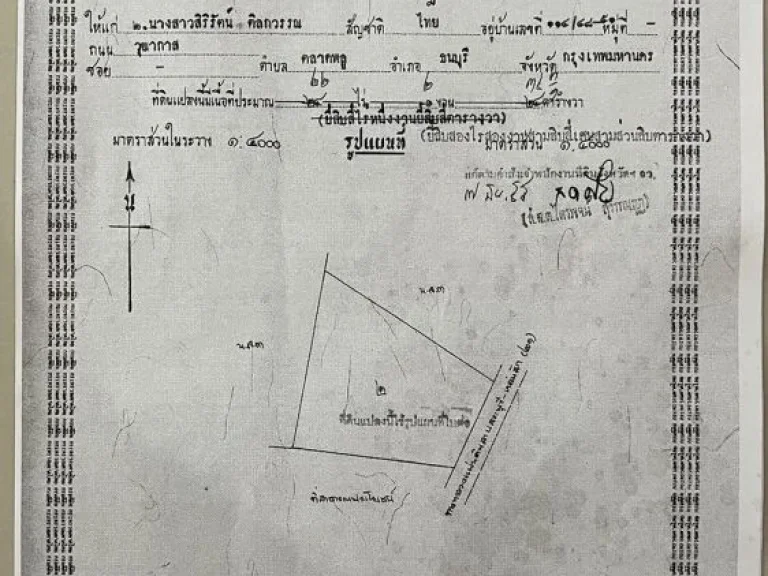 ให้แก่ ๒.นางสาวสิริรัตน์ ศิลกวรรณ สัญชาติ ไทย อยู่บ้านเลขที่ ๑๑๔/๔๘-๕๑ หมู่ที่ -
ถนน วุฒากาศ
ซอย - ตำบล ตลาดพลู อำเภอ ธนบุรี จังหวัด กรุงเทพมหานคร
ที่ดินแปลงนี้มีเนื้อที่ประมาณ ๒๔ ไร่ ๑ งาน ๒๔ ตารางวา
(ยี่สิบสี่ไร่หนึ่งงานยี่สิบสี่ตารางวา)
มาตราส่วนในระวาง ๑:๔๐๐๐ รูปแผนที่ (ยี่สิบสองไร่สองงานสามสิบสี่เศษสามส่วนสิบตารางวา)
มาตราส่วน ๑:๔๐๐๐
น
น.ส.๓
น.ส.๓
๒
ที่ดินแปลงนี้ใช้รูปแผนที่ใบต่อ
ทางหลวงแผ่นดินสายสระบุรี-หล่มสัก (๒๑)
ที่สาธารณประโยชน์